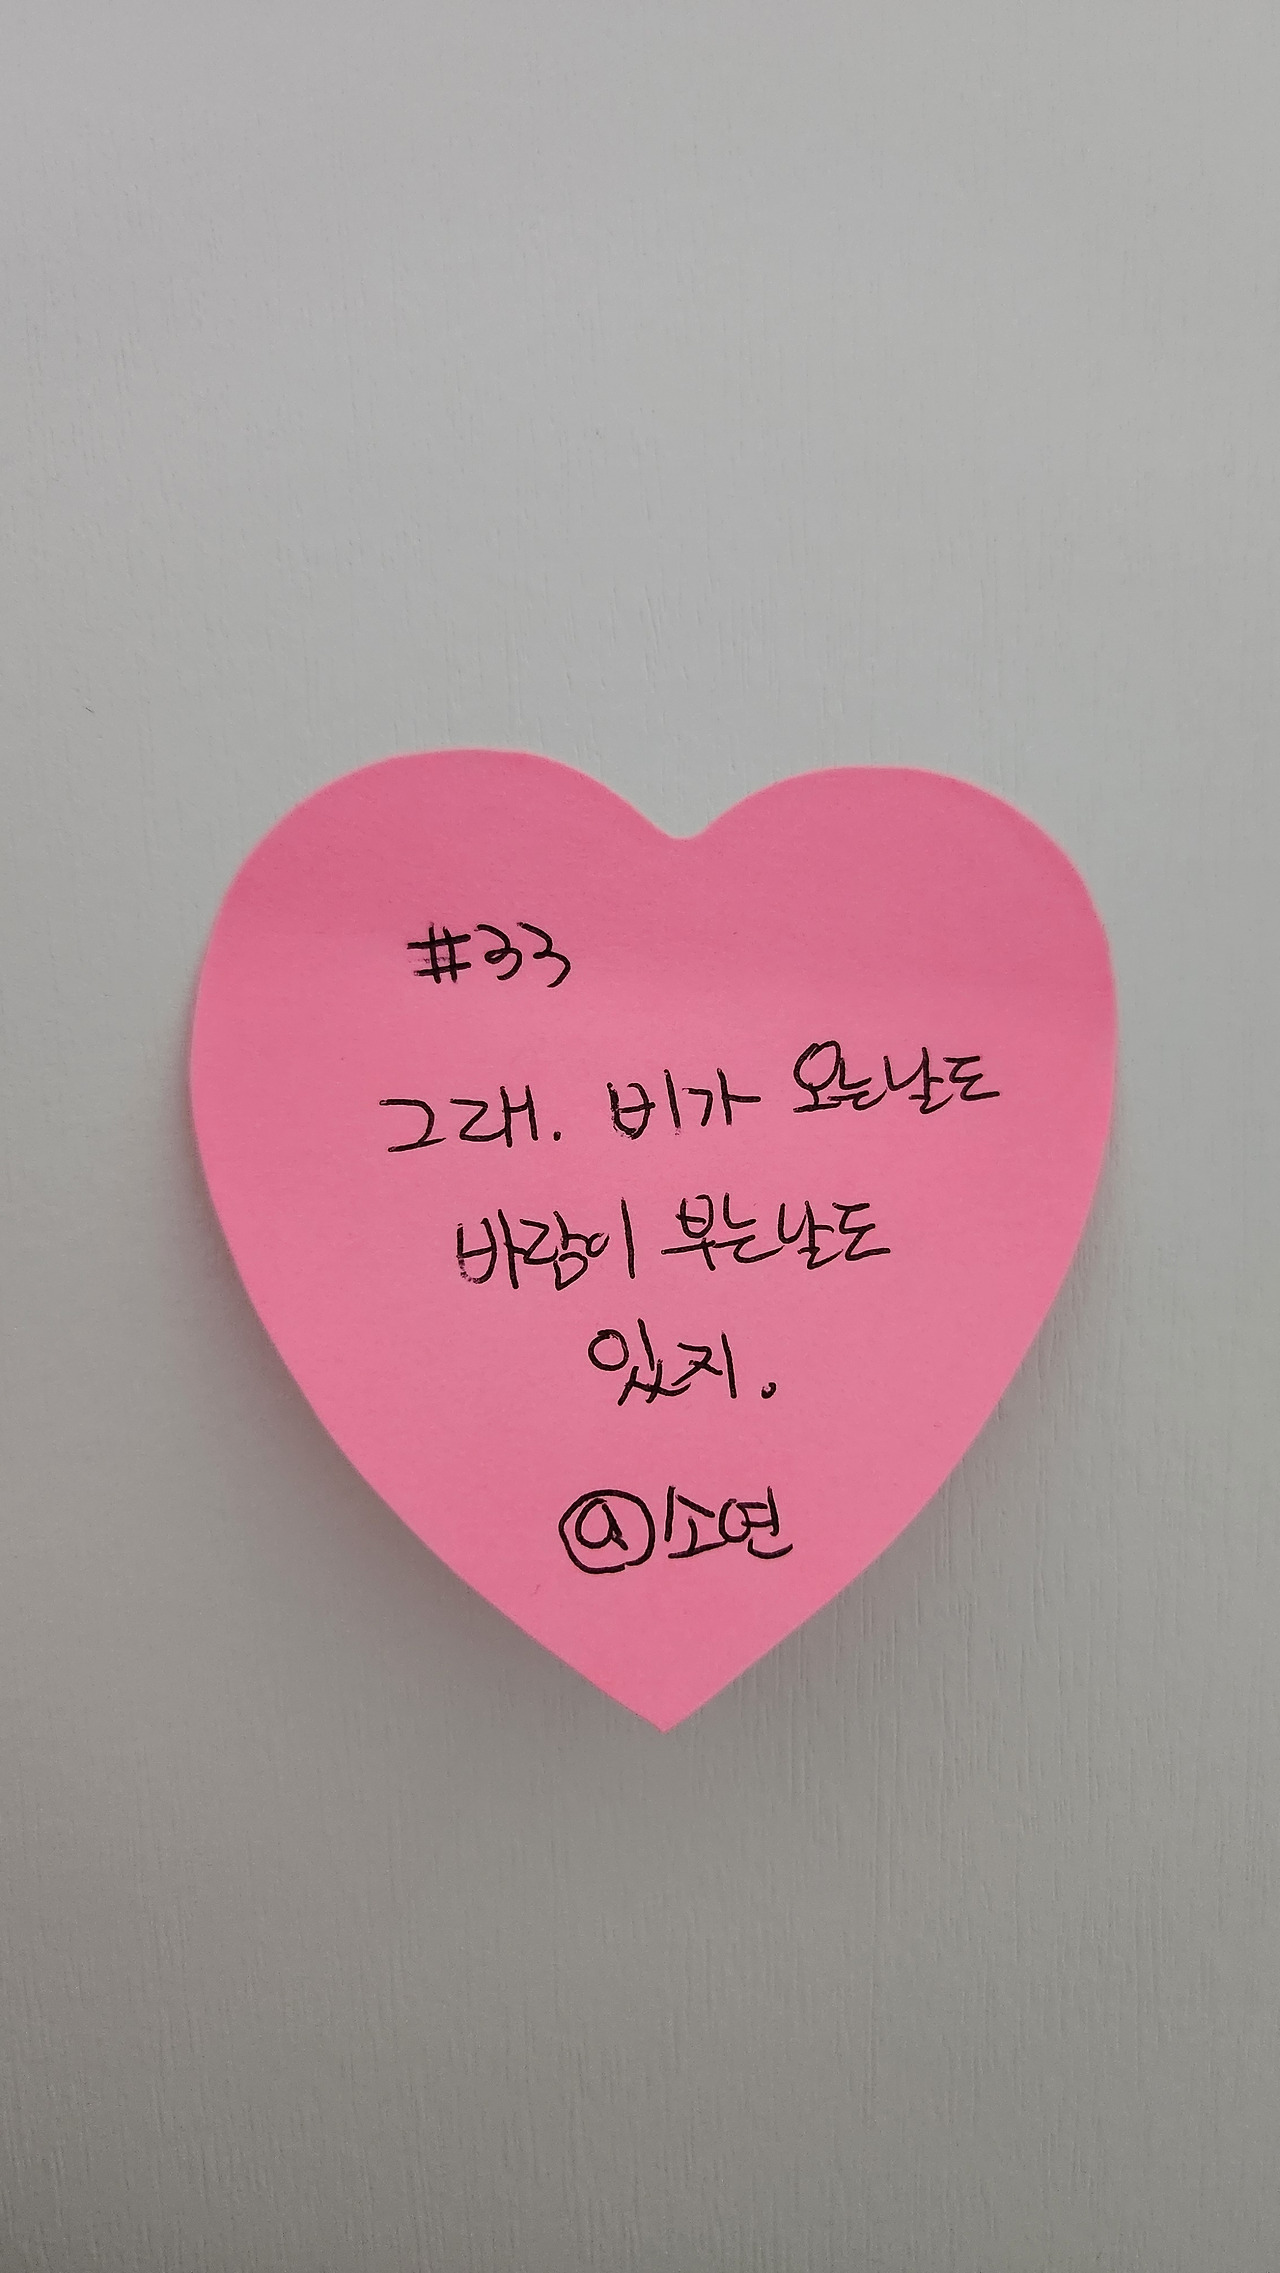 #33
그래. 비가 오는날도
바람이 부는날도
있지.
@소연